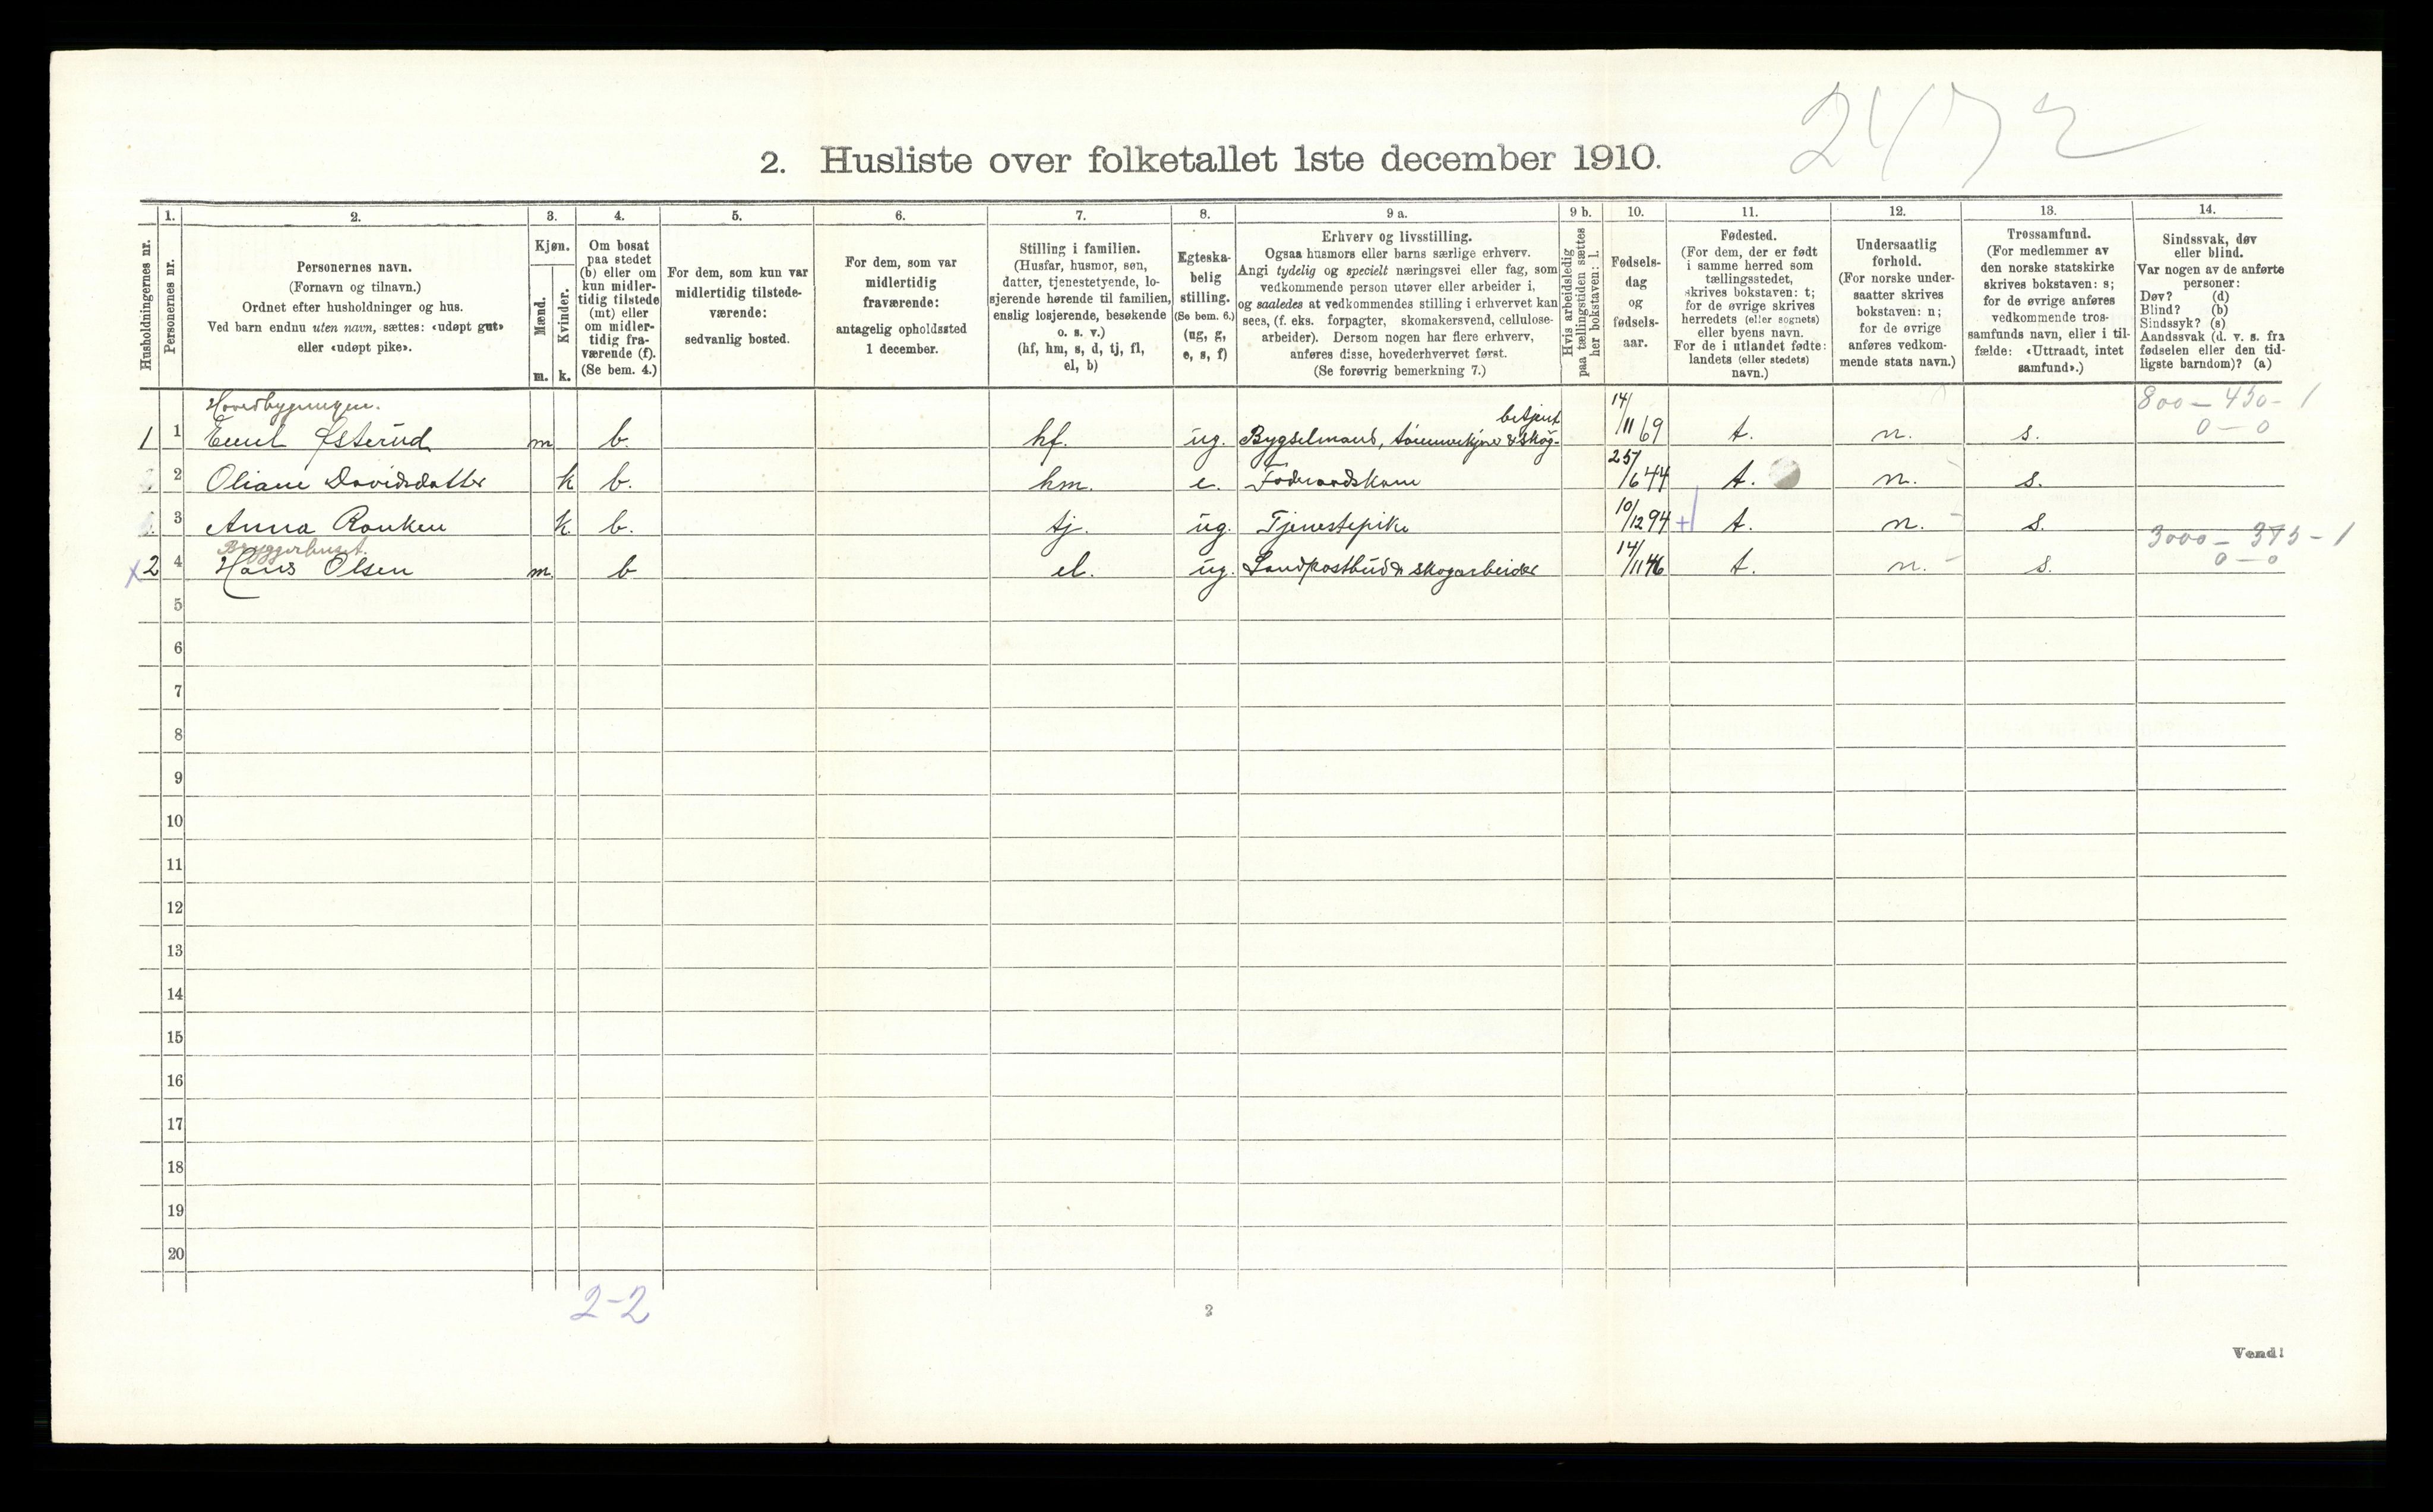 2472
2. Husliste over folketallet 1ste december 1910.
Husholdningernes nr.
1.
Personernes nr.
2.
Personernes navn.
(Fornavn og tilnavn.)
Ordnet efter husholdninger og hus.
Ved barn endnu uten navn, sættes: «udøpt gut»
eller «udøpt pike».
3.
Kjøn.
Mænd.
m.
Kvinder.
k.
4.
Om bosat
paa stedet
(b) eller om
kun midler-
tidig tilstede
(mt) eller
om midler-
tidig fra-
værende (f).
(Se bem. 4.)
5.
For dem, som kun var
midlertidig tilstede-
værende:
sedvanlig bosted.
6.
For dem, som var
midlertidig
fraværende:
antagelig opholdssted
1 december.
7.
Stilling i familien.
(Husfar, husmor, søn,
datter, tjenestetyende, lo-
sjerende hørende til familien,
enslig losjerende, besøkende
o. s. v.)
(hf, hm, s, d, tj, fl,
el, b)
8.
Egteska-
belig
stilling.
(Se bem. 6.)
(ug, g,
e, s, f)
9 a.
Erhverv og livsstilling.
Ogsaa husmors eller barns særlige erhverv.
Angi tydelig og specielt næringsvei eller fag, som
vedkommende person utøver eller arbeider i,
og saaledes at vedkommendes stilling i erhvervet kan
sees, (f. eks. forpagter, skomakersvend, cellulose-
arbeider). Dersom nogen har flere erhverv,
anføres disse, hovederhvervet først.
(Se forøvrig bemerkning 7.)
9 b.
Hvis arbeidsledig
paa tællingstiden sættes
her bokstaven: l.
10.
Fødsels-
dag
og
fødsels-
aar.
11.
Fødested.
(For dem, der er født
i samme herred som
tællingsstedet,
skrives bokstaven: t;
for de øvrige skrives
herredets (eller sognets)
eller byens navn.
For de i utlandet fødte:
landets (eller stedets)
navn.)
12.
Undersaatlig
forhold.
(For norske under-
saatter skrives
bokstaven: n;
for de øvrige
anføres vedkom-
mende stats navn.)
13.
Trossamfund.
(For medlemmer av
den norske statskirke
skrives bokstaven: s;
for de øvrige anføres
vedkommende tros-
samfunds navn, eller i til-
fælde: «Uttraadt, intet
samfund».)
14.
Sindssvak, døv
eller blind.
Var nogen av de anførte
personer:
Døv? (d)
Blind? (b)
Sindssyk? (s)
Aandssvak (d. v. s. fra
fødselen eller den tid-
ligste barndom)? (a)
Hovedbygningen. 800 - 450 - 1
1 1 Emil Østerud m b. hf. ug. Bygselmand, tømmerkjører & skog- betjent 14/11 69 t. n. s. 0 - 0
2 Oliane Davidsdatter k b. hm. e. Føderaadskone 25/6 44 t. n. s.
3 Anna Ronken k b. tj. ug. Tjenestepike 10/12 94 t. n. s.
Bryggerhuset. 3000 - 375 - 1
x 2 4 Hans Olsen m. b el. ug. Landpostbud & skogarbeider 14/11 46 t. n. s. 0 - 0
5
6
7
8
9
10
11
12
13
14
15
16
17
18
19
20
2-2
2
Vend!